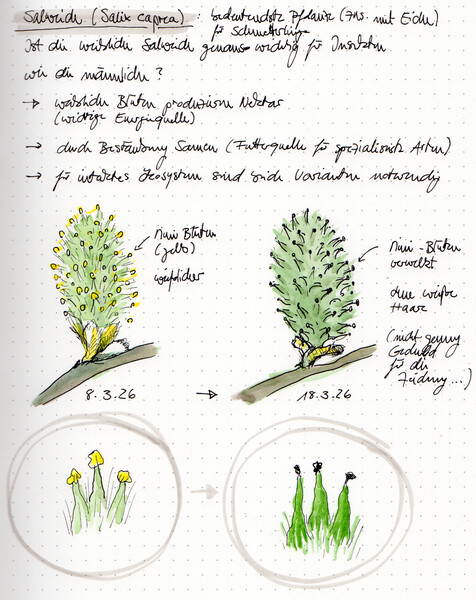 Salweide (Salix caprea) : bedeutendste Pflanze (zus. mit Eiche)
für Schmetterlinge
Ist die weibliche Salweide genauso wichtig für Insekten
wie die männliche ?
→ weibliche Blüten produzieren Nektar
(wichtige Energiequelle)
→ durch Bestäubung Samen (Futterquelle für spezialisierte Arten)
→ für intaktes Ökosystem sind beide Varianten notwendig
Mini Blüten
(gelb)
weiblicher
Mini-Blüten
verwelkt
ohne weiße
Haare
(nicht genug
Geduld
für die
Zeichnung ...)
8.3.26 → 18.3.26